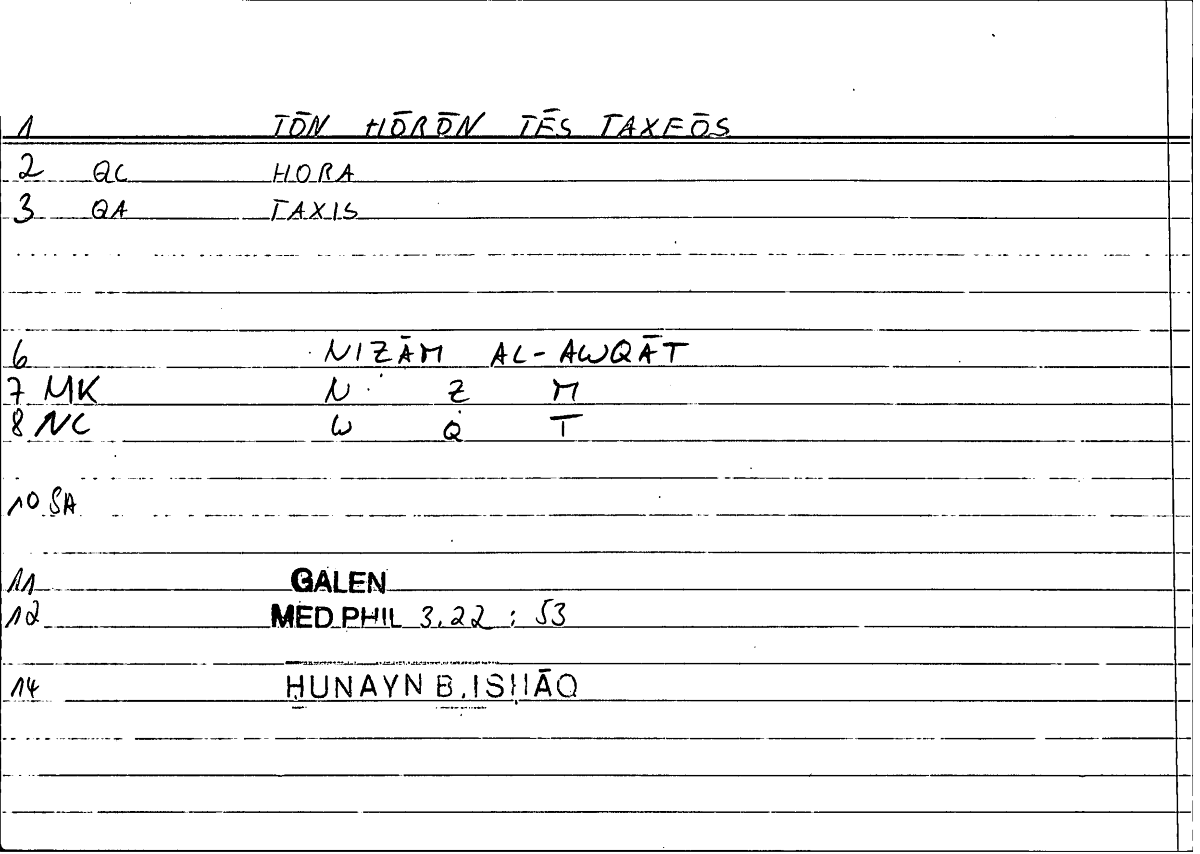 1 TŌN HŌRŌN TĒS TAXEŌS
2 QC HORA
3 QA TAXIS
6 NIẒĀM AL-AWQĀT
7 MK N Ẓ M
8 NC W Q T
10 SA
11 GALEN
12 MED PHIL 3.22 : 53
14 ḤUNAYN B. ISḤĀQ